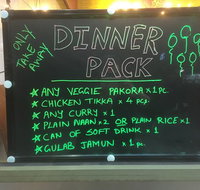 ONLY
TAKE
AWAY
DINNER
PACK
★ ANY VEGGIE PAKORA × 1 pc.
★ CHICKEN TIKKA × 4 pcs.
★ ANY CURRY × 1
★ PLAIN NAAN × 2 OR PLAIN RICE × 1
★ CAN OF SOFT DRINK × 1
★ GULAB JAMUN × 1 pc.